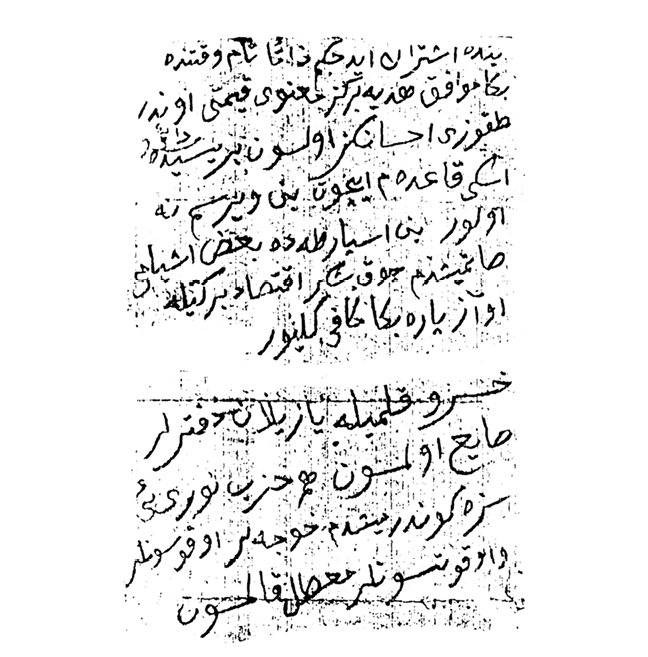 ينده اشتراك ايده جكم ذاتًا تام وقتنده
بكا موافق هديه در كز معنوى قيمتى اوندر
طقوزى احسانكز اولسون بريسيده
اسكى قاعده م ايچون ينى ويرسم نه
اولور بنى اسپارطه ده بعض اشيامى
صاتمشدم چوق شكر اقتصاد بركتيله
او آز پاره بكا كافى گليور
خسرو قلميله يازيلان دفترلر
ضايع اولمسون هم حزب نورى يى
سزه گوندرمشدم خوجه لر اوقوسونلر
واوقوتسونلر معطل قالمسون